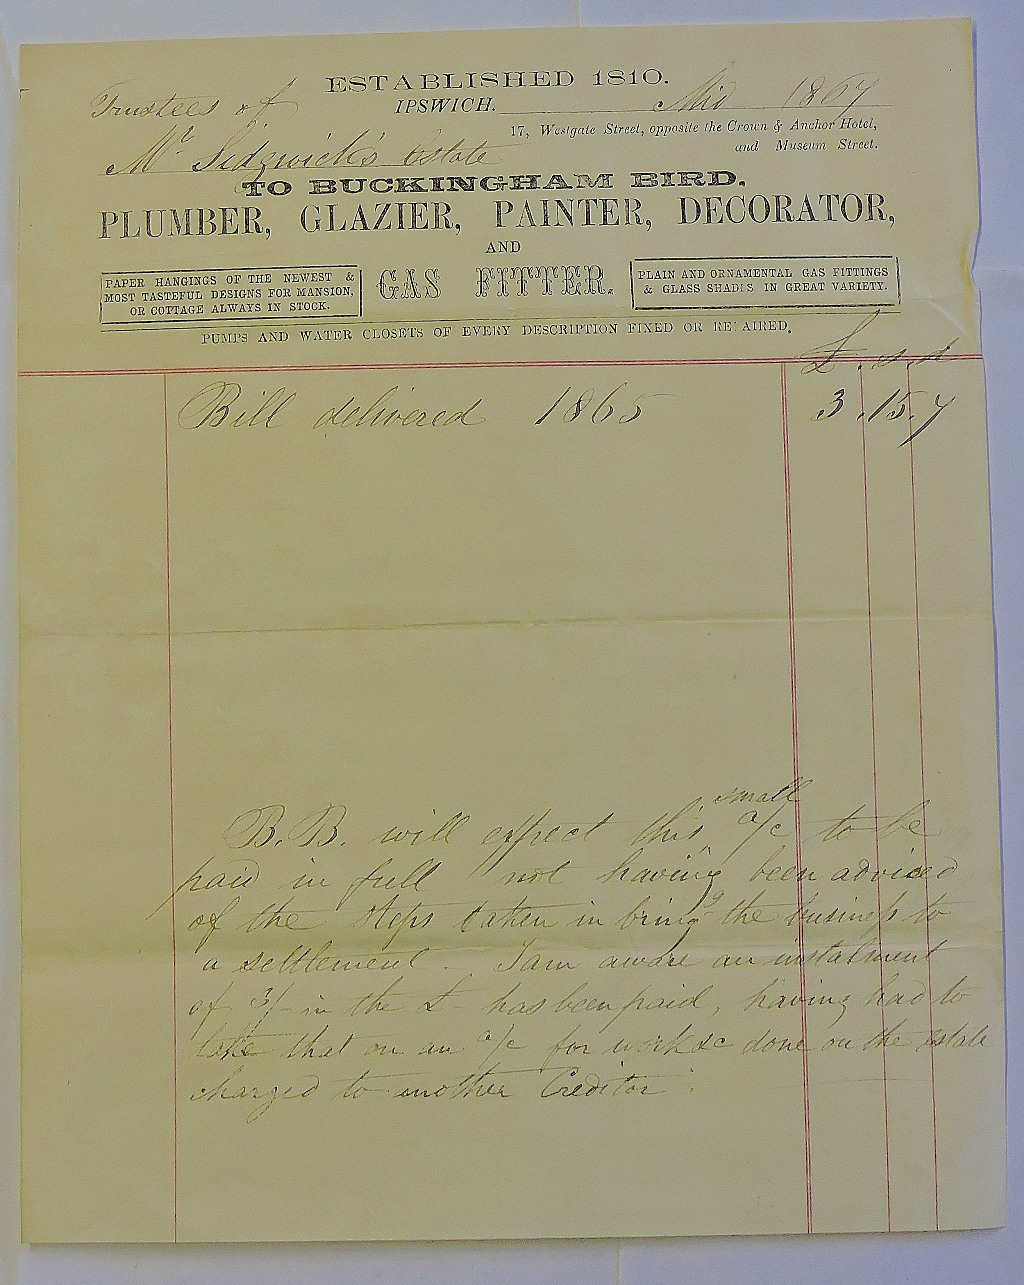 ESTABLISHED 1810.
Trustees of
IPSWICH. Mid 1867
17, Westgate Street, opposite the Crown & Anchor Hotel,
and Museum Street.
Mr Sidgwick's Estate
TO BUCKINGHAM BIRD,
PLUMBER, GLAZIER, PAINTER, DECORATOR,
AND
GAS FITTER.
PAPER HANGINGS OF THE NEWEST &
MOST TASTEFUL DESIGNS FOR MANSION,
OR COTTAGE ALWAYS IN STOCK.
PLAIN AND ORNAMENTAL GAS FITTINGS
& GLASS SHADES IN GREAT VARIETY.
PUMPS AND WATER CLOSETS OF EVERY DESCRIPTION FIXED OR REPAIRED.
£ . s . d
Bill delivered 1865 3 . 15 . 7
B. B. will expect this small a/c to be
paid in full not having been advised
of the steps taken in bring the business to
a settlement - I am aware an instalment
of 3/- in the £ has been paid, having had to
take that on an a/c for work &c done on the Estate
charged to another Creditor